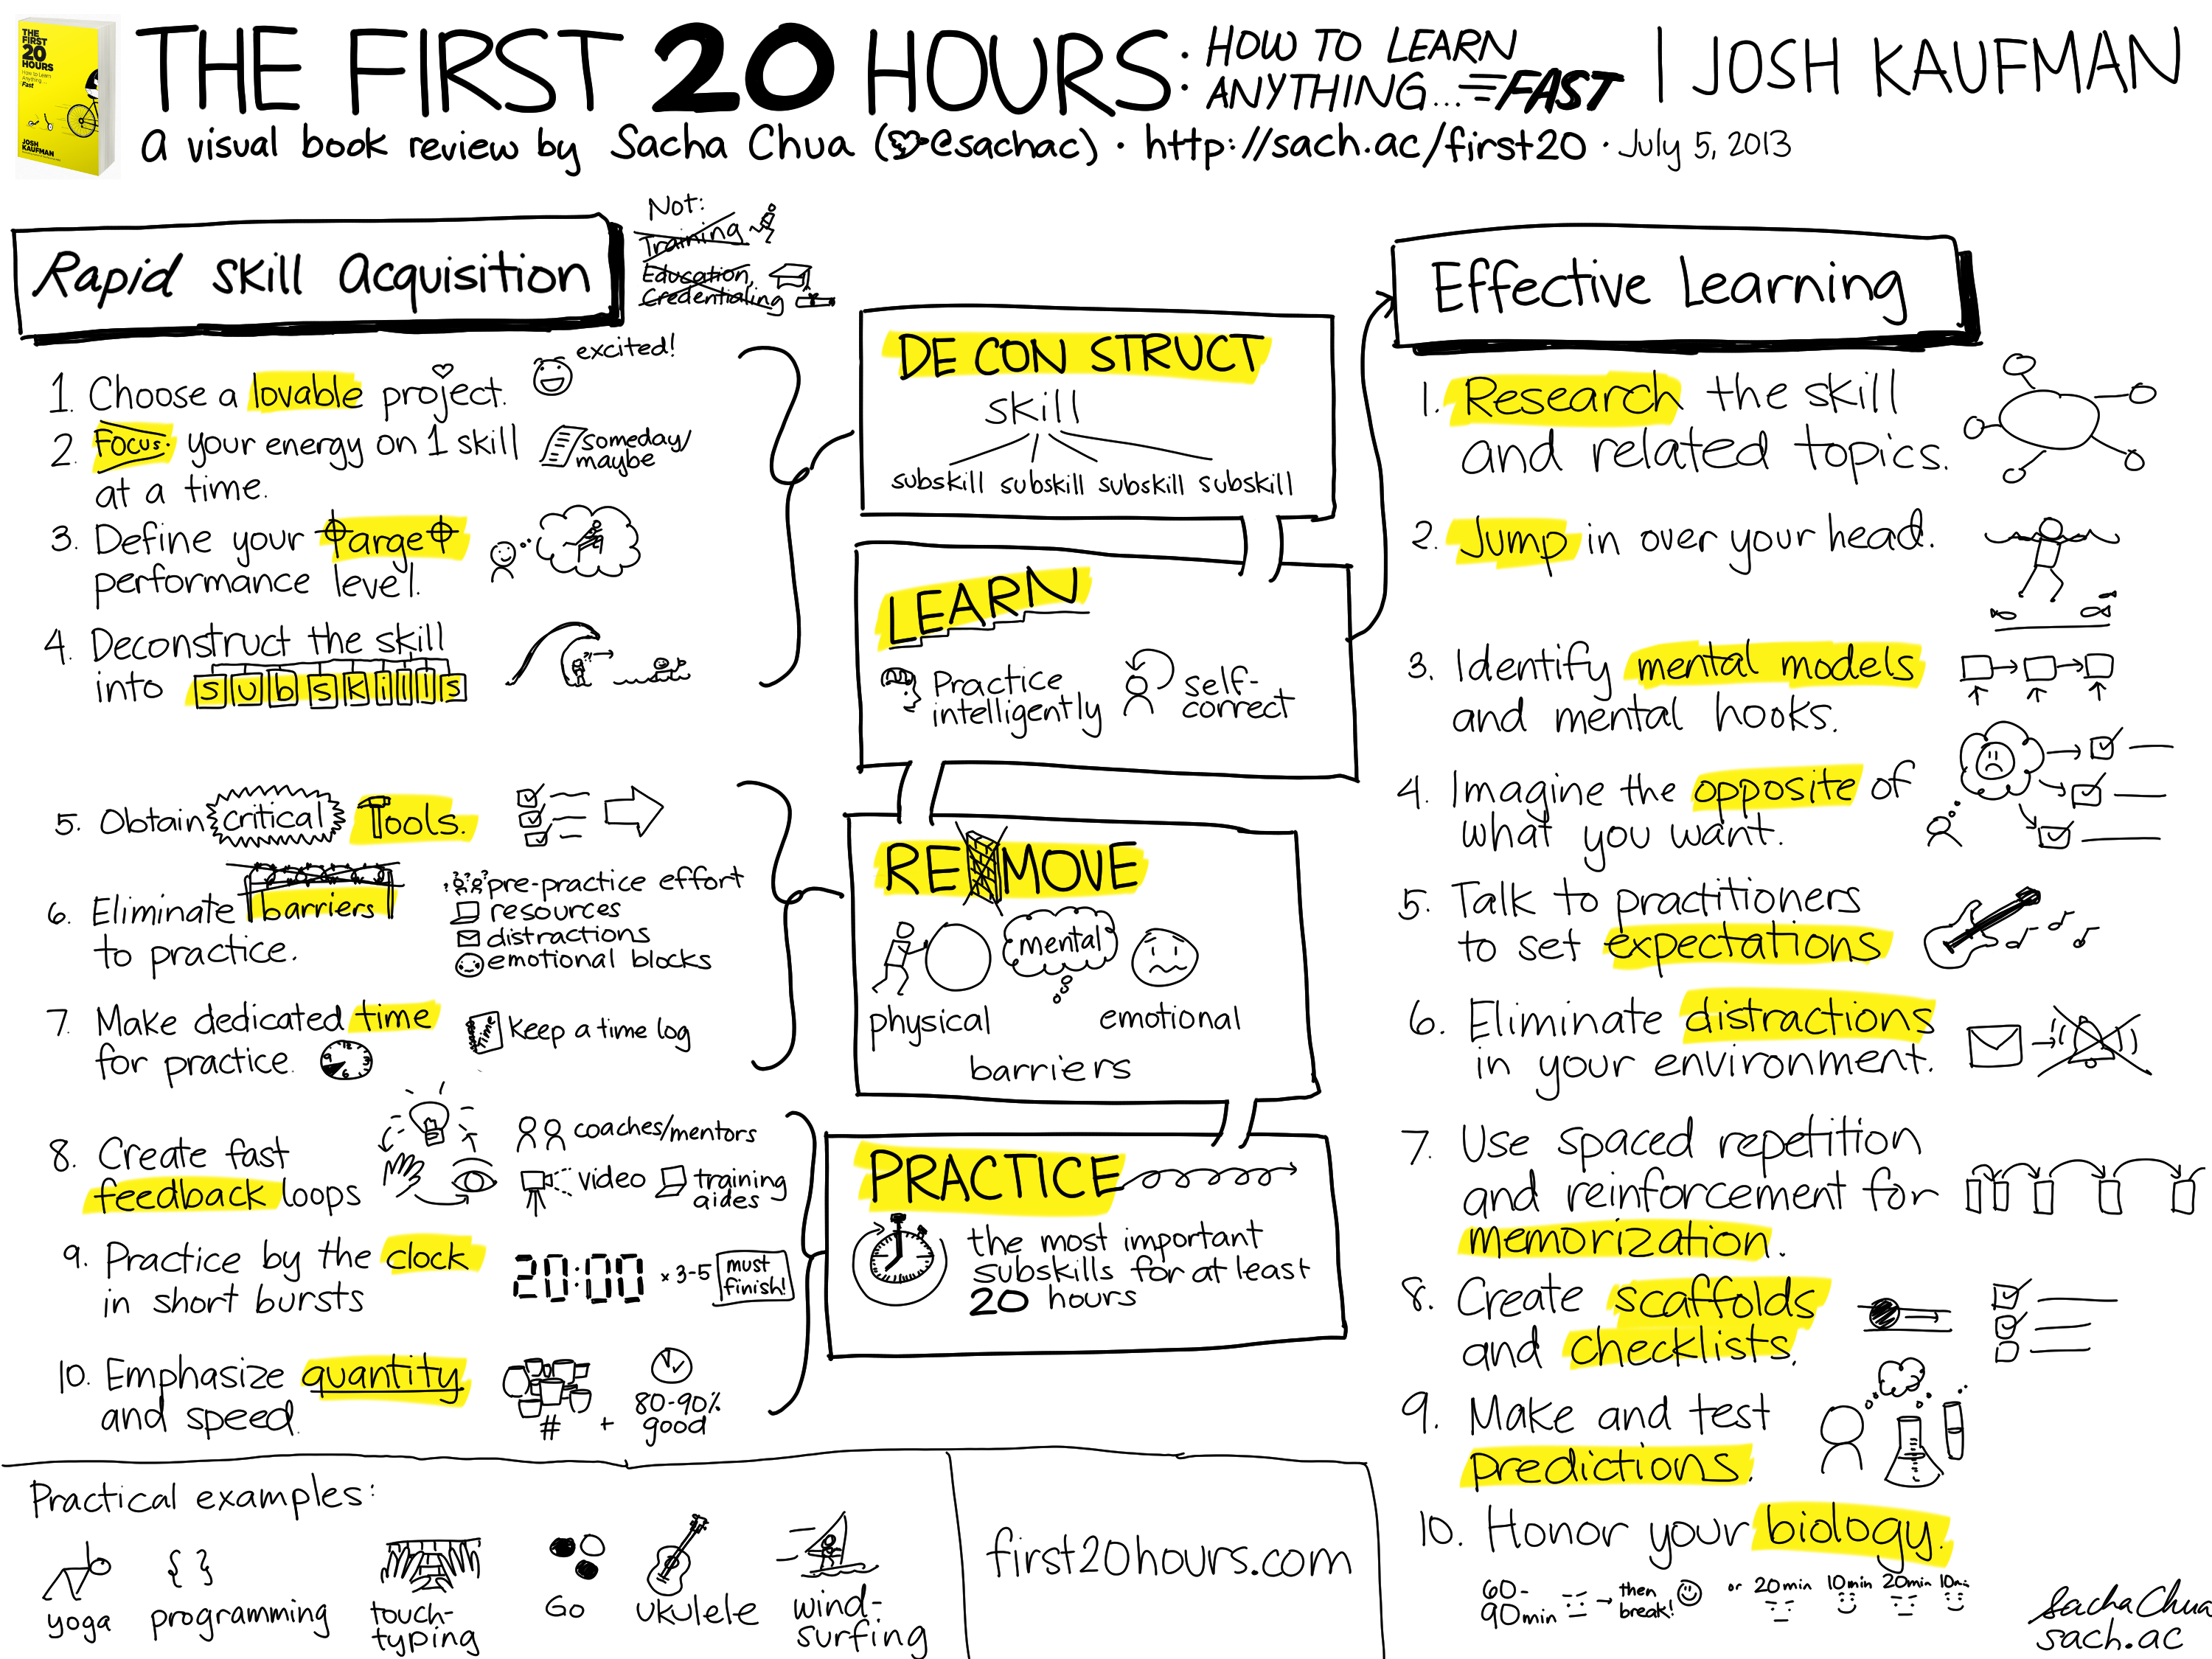 THE FIRST 20 HOURS: HOW TO LEARN ANYTHING... FAST | JOSH KAUFMAN
THE
FIRST
20
HOURS
How to Learn
Anything...
Fast
JOSH
KAUFMAN
a visual book review by Sacha Chua (@sachac) · http://sach.ac/first20 · July 5, 2013
Rapid Skill Acquisition
Not:
Training
Education,
Credentialing
1. Choose a lovable project.
excited!
2. Focus your energy on 1 skill
at a time.
someday/
maybe
3. Define your target
performance level.
4. Deconstruct the skill
into subskills
??
5. Obtain critical Tools.
6. Eliminate barriers
to practice.
pre-practice effort
resources
distractions
emotional blocks
7. Make dedicated time
for practice.
12
9 3
6
Time
Keep a time log
8. Create fast
feedback loops
coaches/mentors
video
training
aides
9. Practice by the clock
in short bursts
20:00 x 3-5
must
finish!
10. Emphasize quantity
and speed.
# +
80-90%
good
DECONSTRUCT
skill
subskill subskill subskill subskill
LEARN
Practice
intelligently
self-
correct
REMOVE
physical
mental
emotional
barriers
PRACTICE
the most important
subskills for at least
20 hours
Effective Learning
1. Research the skill
and related topics.
2. Jump in over your head.
3. Identify mental models
and mental hooks.
4. Imagine the opposite of
what you want.
5. Talk to practitioners
to set expectations
6. Eliminate distractions
in your environment.
7. Use spaced repetition
and reinforcement for
memorization.
8. Create scaffolds
and checklists.
9. Make and test
predictions.
10. Honor your biology.
60-
90min → then
break!
or 20min 10min 20min 10min
Practical examples:
yoga
programming
{ }
touch-
typing
Go
ukulele
wind-
surfing
first20hours.com
Sacha Chua
sach.ac